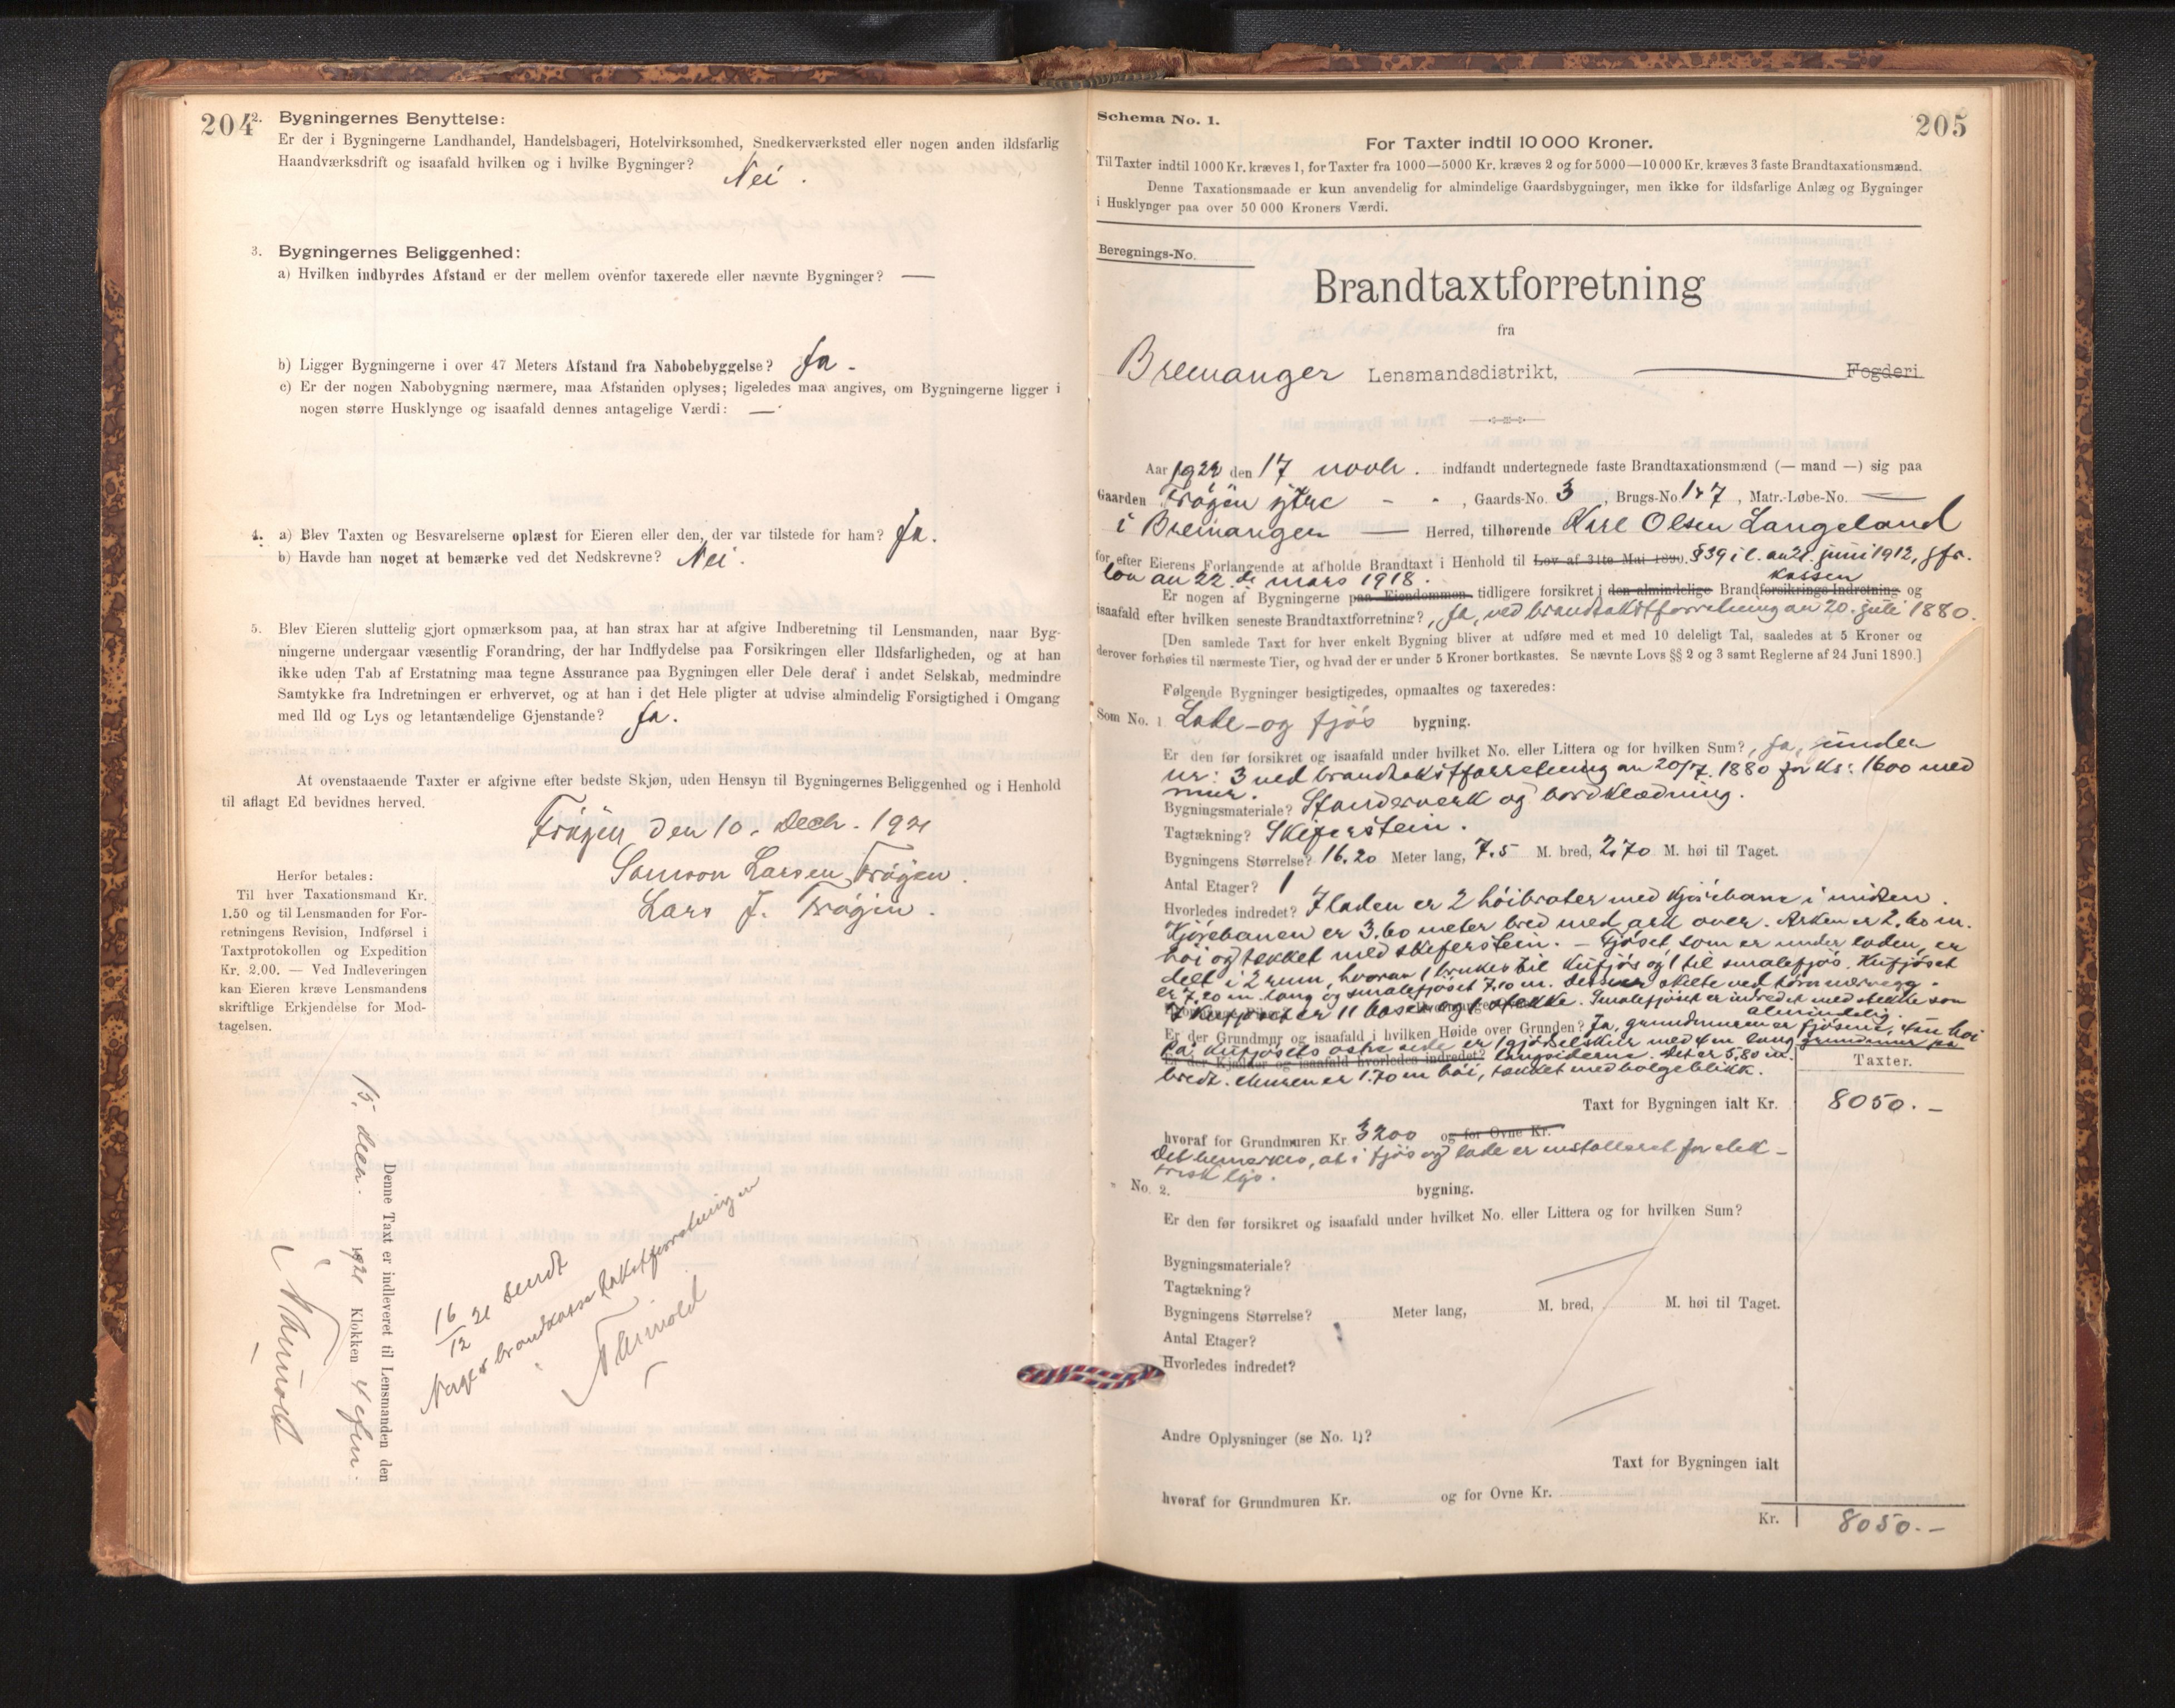 204
2. Bygningernes Benyttelse:
Er der i Bygningerne Landhandel, Handelsbageri, Hotelvirksomhed, Snedkerværksted eller nogen anden ildsfarlig
Haandværksdrift og isaafald hvilken og i hvilke Bygninger?
Nei.
3. Bygningernes Beliggenhed:
a) Hvilken indbyrdes Afstand er der mellem ovenfor taxerede eller nævnte Bygninger? —
b) Ligger Bygningerne i over 47 Meters Afstand fra Nabobebyggelse? Ja -
c) Er der nogen Nabobygning nærmere, maa Afstanden oplyses; ligeledes maa angives, om Bygningerne ligger i
nogen større Husklynge og isaafald dennes antagelige Værdi: —
4. a) Blev Taxten og Besvarelserne oplæst for Eieren eller den, der var tilstede for ham? Ja.
b) Havde han noget at bemærke ved det Nedskrevne? Nei.
5. Blev Eieren sluttelig gjort opmærksom paa, at han strax har at afgive Indberetning til Lensmanden, naar Byg-
ningerne undergaar væsentlig Forandring, der har Indflydelse paa Forsikringen eller Ildsfarligheden, og at han
ikke uden Tab af Erstatning maa tegne Assurance paa Bygningen eller Dele deraf i andet Selskab, medmindre
Samtykke fra Indretningen er erhvervet, og at han i det Hele pligter at udvise almindelig Forsigtighed i Omgang
med Ild og Lys og letantændelige Gjenstande? Ja.
At ovenstaaende Taxter er afgivne efter bedste Skjøn, uden Hensyn til Bygningernes Beliggenhed og i Henhold
til aflagt Ed bevidnes herved.
Frøyen den 10. Decbr. 1921
Samson Larsen Frøyen.
Lars J. Frøyen.
Herfor betales:
Til hver Taxationsmand Kr.
1.50 og til Lensmanden for For-
retningens Revision, Indførsel i
Taxtprotokollen og Expedition
Kr. 2.00. — Ved Indleveringen
kan Eieren kræve Lensmandens
skriftlige Erkjendelse for Mod-
tagelsen.
Denne Taxt er indleveret til Lensmanden den
15. decbr. 1921 Klokken 4 efm.
16/12 21 sendt
Norges brandkasse takstforretningen
Schema No. 1.
205
For Taxter indtil 10 000 Kroner.
Til Taxter indtil 1000 Kr. kræves 1, for Taxter fra 1000—5000 Kr. kræves 2 og for 5000—10 000 Kr. kræves 3 faste Brandtaxationsmænd.
Denne Taxationsmaade er kun anvendelig for almindelige Gaardsbygninger, men ikke for ildsfarlige Anlæg og Bygninger
i Husklynger paa over 50 000 Kroners Værdi.
Beregnings-No.
Brandtaxtforretning
fra
Bremanger Lensmandsdistrikt, — Fogderi
Aar 1921 den 17 novbr. indfandt undertegnede faste Brandtaxationsmænd (— mand —) sig paa
Gaarden Frøyen ytre - - , Gaards-No. 3, Brugs-No. 1&7, Matr.-Løbe-No. —
i Bremanger — Herred, tilhørende Karl Olsen Langeland
for efter Eierens Forlangende at afholde Brandtaxt i Henhold til Lov af 31te Mai 1890. § 39 i l. av 21. juni 1912, jfr.
lov av 22de mars 1918.
Er nogen af Bygningerne paa Eiendommen tidligere forsikret i den almindelige Brandforsikrings-Indretning kassen og
isaafald efter hvilken seneste Brandtaxtforretning?, Ja, ved brandtakstforretning av 20. juli 1880.
[Den samlede Taxt for hver enkelt Bygning bliver at udføre med et med 10 deleligt Tal, saaledes at 5 Kroner og
derover forhøies til nærmeste Tier, og hvad der er under 5 Kroner bortkastes. Se nævnte Lovs §§ 2 og 3 samt Reglerne af 24 Juni 1890.]
Følgende Bygninger besigtigedes, opmaaltes og taxeredes:
Som No. 1 Lade- og fjøs bygning.
Er den før forsikret og isaafald under hvilket No. eller Littera og for hvilken Sum?, Ja, under
nr: 3 ved brandtakstforretning av 20/7. 1880 for kr: 1600 med
mur.
Bygningsmateriale? Standerverk og bordklædning.
Tagtækning? Skiferstein.
Bygningens Størrelse? 16.20 Meter lang, 7.5 M. bred, 2.70 M. høi til Taget.
Antal Etager? 1
Hvorledes indredet? I laden er 2 høibroter med kjørebane i midten.
Kjørebanen er 3.60 meter bred med ark over. Arken er 2.60 m.
høi og tækket med skiferstein. - Fjøset, som er under laden, er
delt i 2 rum, hvorav 1 brukes til kufjøs og 1 til smalefjøs. Kufjøset
er 7.20 m. lang og smalefjøset 7.10 m. Disse er skilte ved tømmervegg.
I kufjøset er 11 baser og 1 stekke. Smalefjøset er indredet med stekke som
almindelig.
Er der Grundmur og isaafald i hvilken Høide over Grunden? Ja, grundmuren er fjøsene, 4 m høi
På kufjøsets østre side er 1 gjødselskur med 4 m lang grundmur på
Er der Kjælder og isaafald hvorledes indredet? langsiderne. Det er 5.80 m.
bredt. Muren er 1.70 m høi, tækket med bølgeblikk.
Taxter.
Taxt for Bygningen ialt Kr. 8050.-
hvoraf for Grundmuren Kr. 3200 og for Ovne Kr.
Det bemerkes, at i fjøs og lade er installeret for elek-
trisk lys.
" No. 2. bygning.
Er den før forsikret og isaafald under hvilket No. eller Littera og for hvilken Sum?
Bygningsmateriale?
Tagtækning?
Bygningens Størrelse? Meter lang, M. bred, M. høi til Taget.
Antal Etager?
Hvorledes indredet?
Andre Oplysninger (se No. 1)?
Taxt for Bygningen ialt
hvoraf for Grundmuren Kr. og for Ovne Kr.
Kr. 8050.-